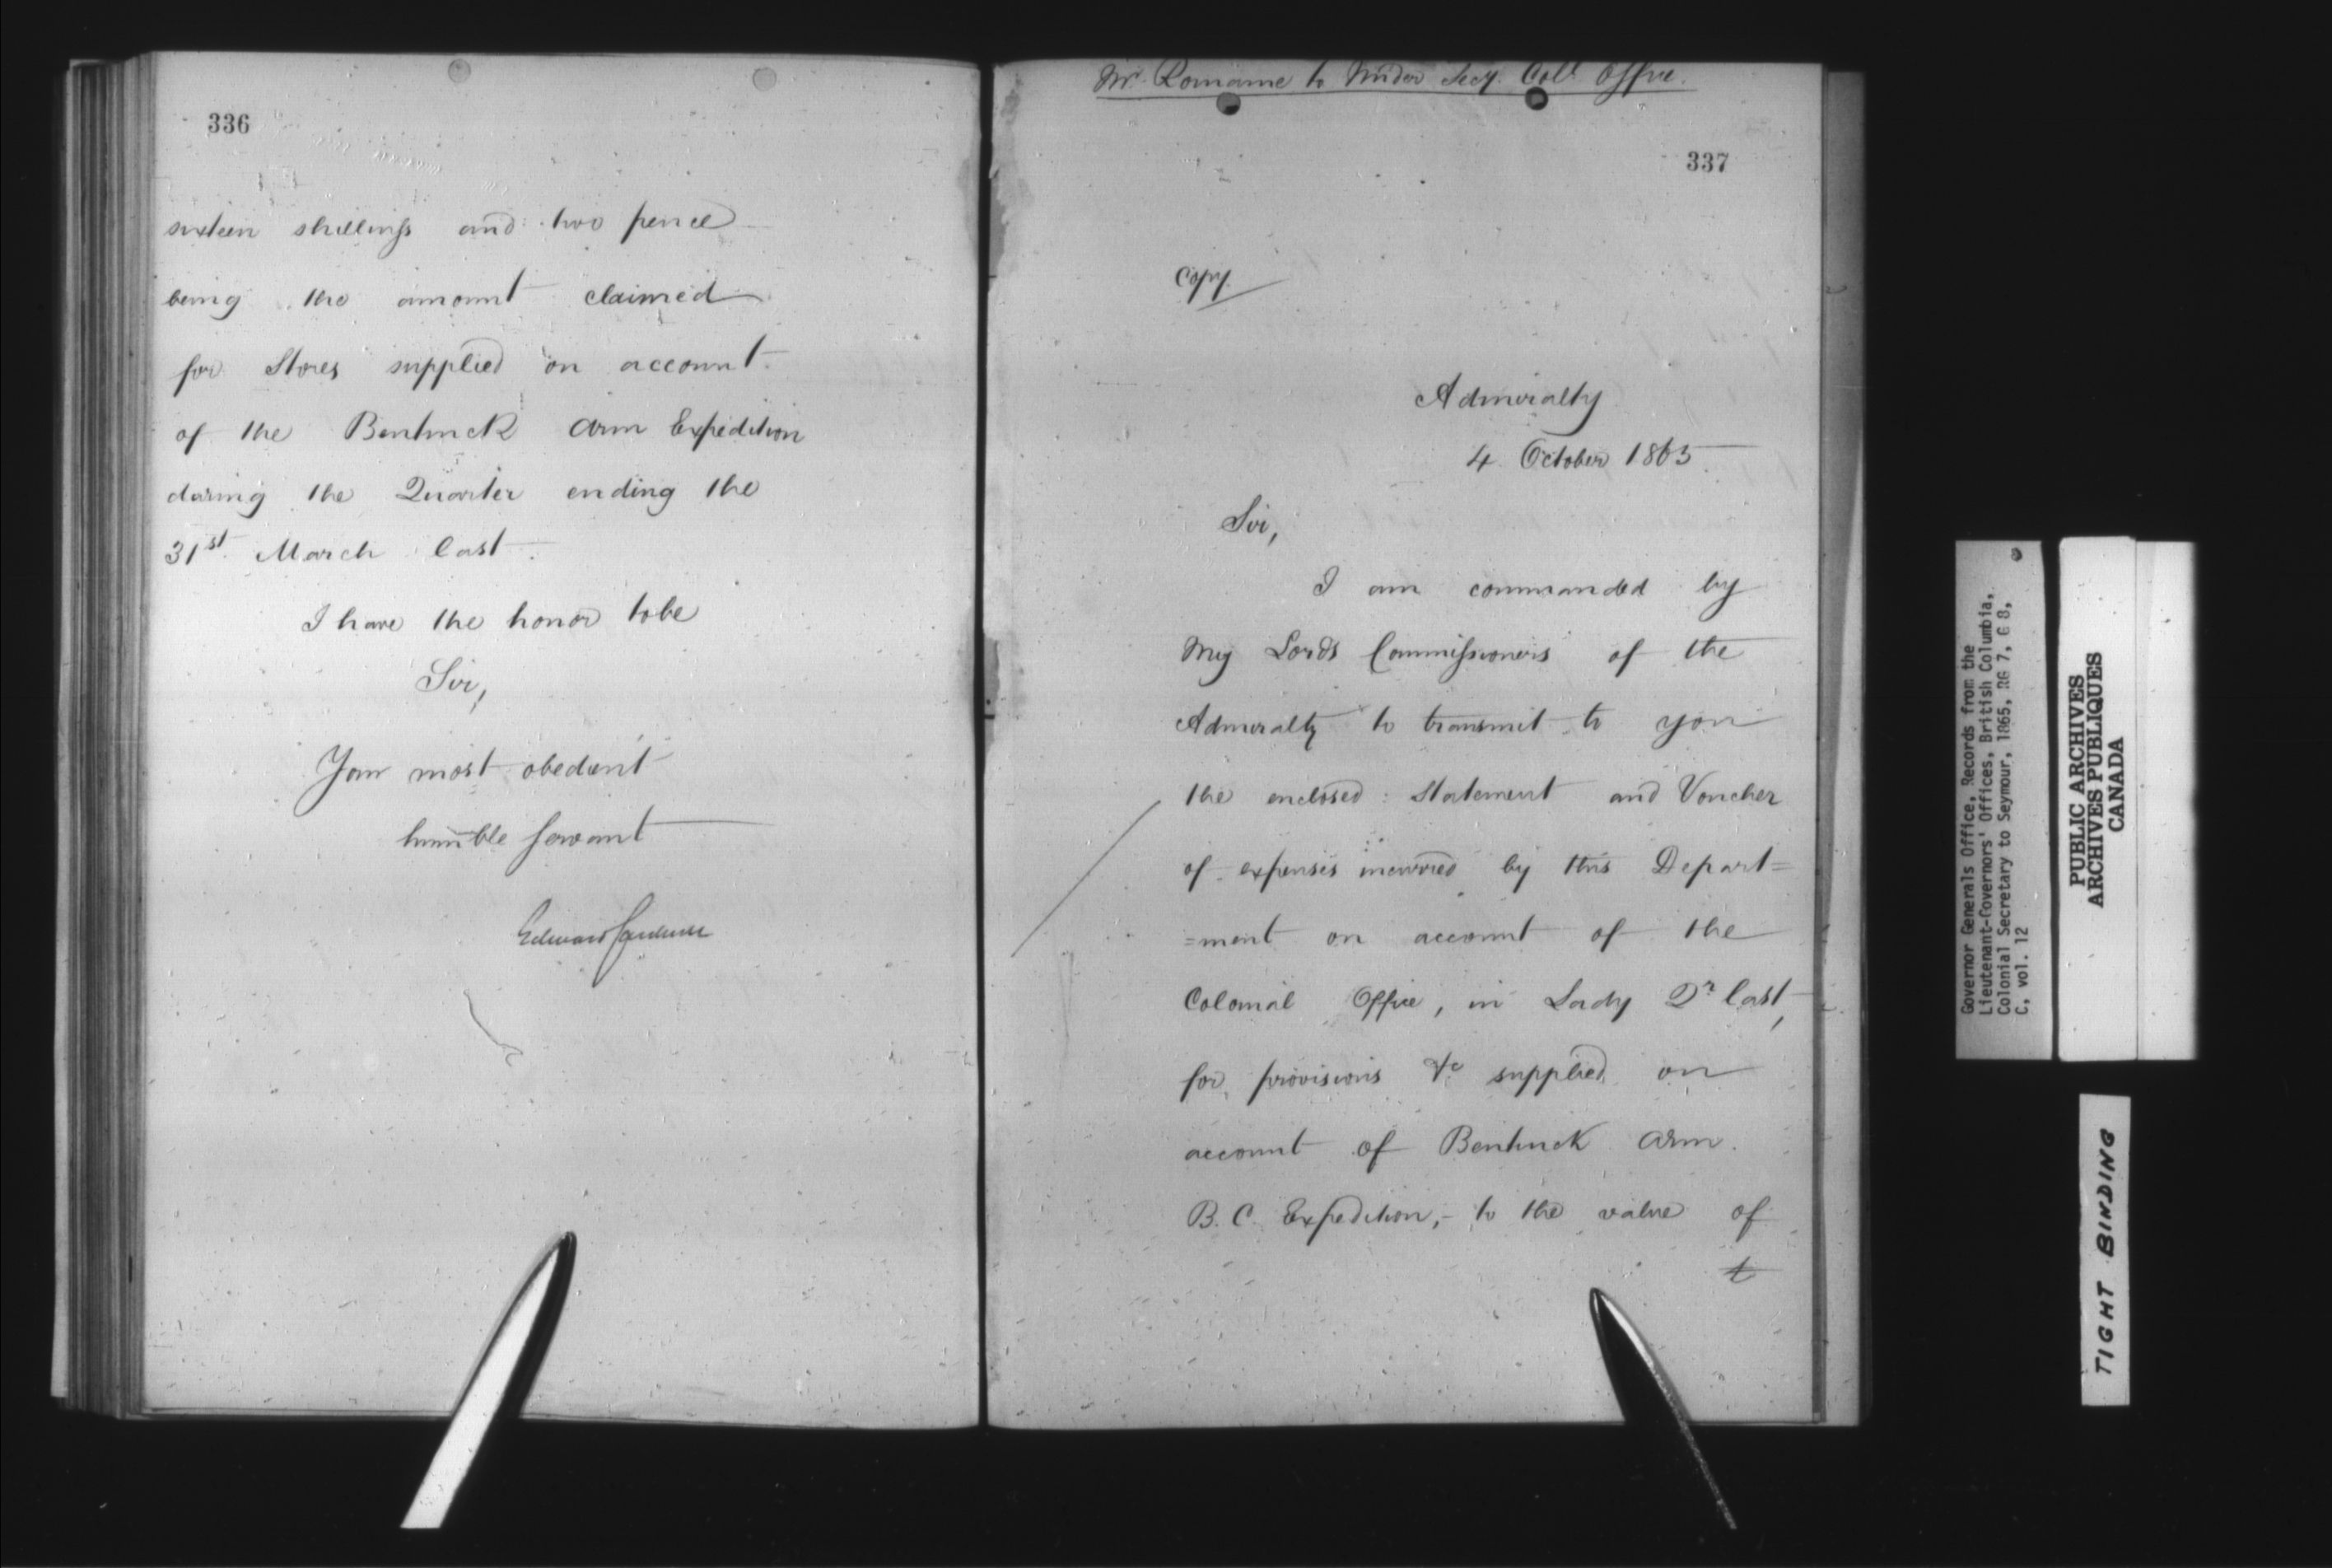 336
sixteen shillings and two pence
being the amount claimed
for Stores supplied on account
of the Bentinck Arm Expedition
during the Quarter ending the
31st March last.
I have the honor to be
Sir,
Your most obedient
humble Servant
Edward Cardwell
Mr. Romaine to Under Secy. Coll. Office.
337
Copy.
Admiralty
4 October 1865
Sir,
I am commanded by
My Lords Commissioners of the
Admiralty to transmit to you
the enclosed Statement and Voucher
of expenses incurred by this Depart=
=ment on account of the
Colonial Office, in Lady Qr last,
for provisions &c supplied on
account of Bentinck Arm
B.C. Expedition, - to the value of
Governor Generals Office, Records from the
Lieutenant-Governors' Offices, British Columbia,
Colonial Secretary to Seymour, 1865, RG 7, G 8,
C, vol. 12
PUBLIC ARCHIVES
ARCHIVES PUBLIQUES
CANADA
TIGHT BINDING